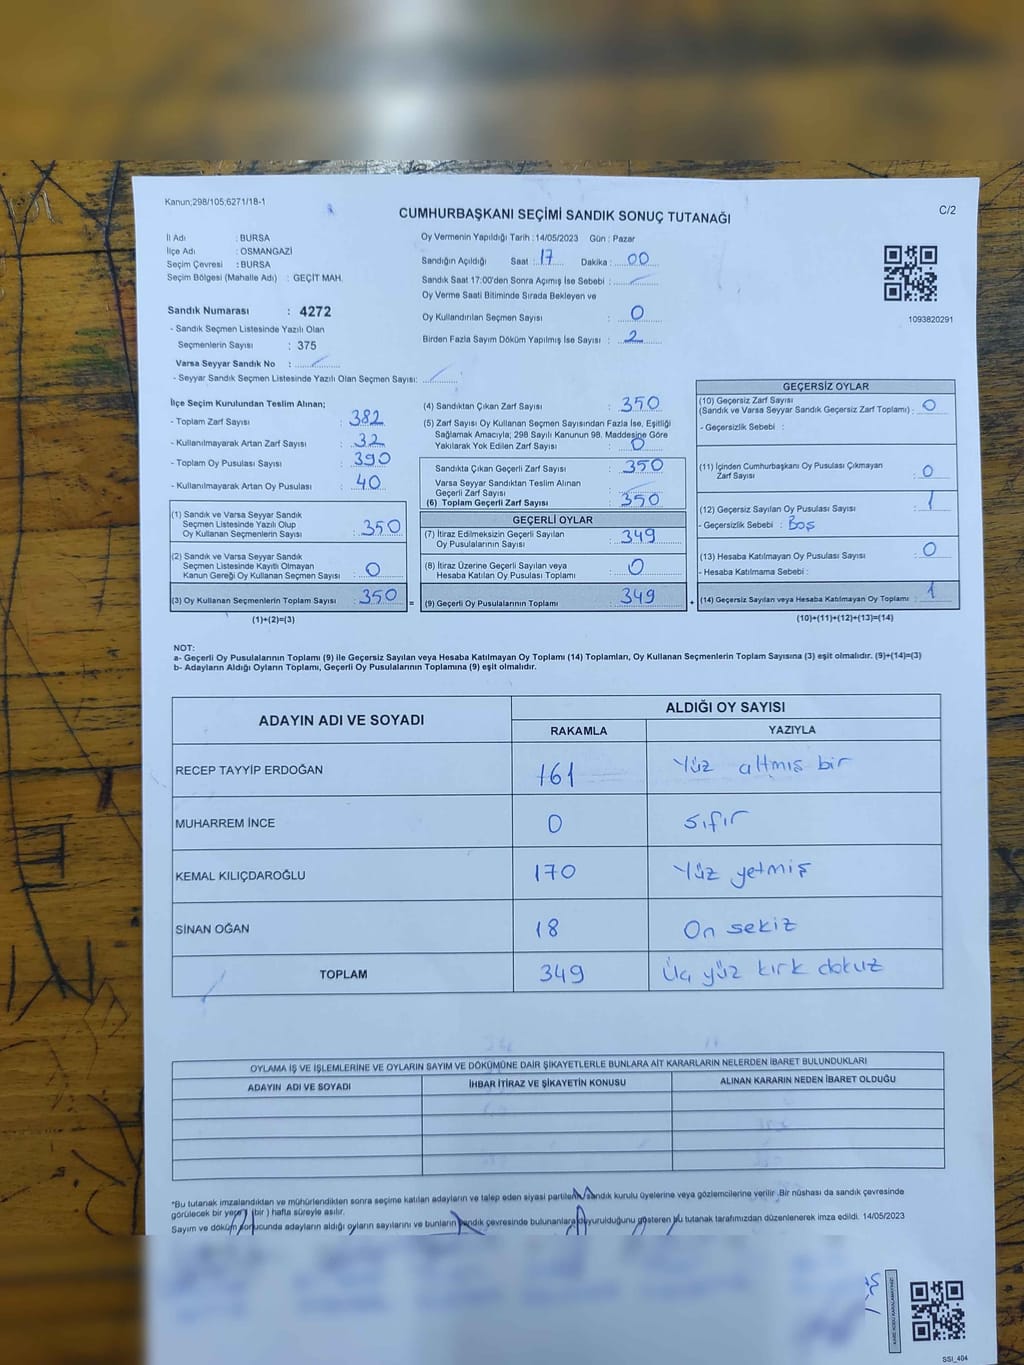 Kanun;298/105;6271/18-1
C/2
CUMHURBAŞKANI SEÇİMİ SANDIK SONUÇ TUTANAĞI
İl Adı : BURSA
İlçe Adı : OSMANGAZİ
Seçim Çevresi : BURSA
Seçim Bölgesi (Mahalle Adı) : GEÇİT MAH.
Oy Vermenin Yapıldığı Tarih : 14/05/2023 Gün : Pazar
Sandığın Açıldığı Saat : 17 Dakika : 00
Sandık Saat 17:00'den Sonra Açımış İse Sebebi :
Oy Verme Saati Bitiminde Sırada Bekleyen ve
Oy Kullandırılan Seçmen Sayısı : 0
Birden Fazla Sayım Döküm Yapılmış İse Sayısı : 2
1093820291
Sandık Numarası : 4272
- Sandık Seçmen Listesinde Yazılı Olan
Seçmenlerin Sayısı : 375
Varsa Seyyar Sandık No :
- Seyyar Sandık Seçmen Listesinde Yazılı Olan Seçmen Sayısı:
İlçe Seçim Kurulundan Teslim Alınan;
- Toplam Zarf Sayısı : 382
- Kullanılmayarak Artan Zarf Sayısı : 32
- Toplam Oy Pusulası Sayısı : 390
- Kullanılmayarak Artan Oy Pusulası : 40
(1) Sandık ve Varsa Seyyar Sandık
Seçmen Listesinde Yazılı Olup
Oy Kullanan Seçmenlerin Sayısı : 350
(2) Sandık ve Varsa Seyyar Sandık
Seçmen Listesinde Kayıtlı Olmayan
Kanun Gereği Oy Kullanan Seçmen Sayısı : 0
(3) Oy Kullanan Seçmenlerin Toplam Sayısı : 350 =
(1)+(2)=(3)
(4) Sandıktan Çıkan Zarf Sayısı : 350
(5) Zarf Sayısı Oy Kullanan Seçmen Sayısından Fazla İse, Eşitliği
Sağlamak Amacıyla; 298 Sayılı Kanunun 98. Maddesine Göre
Yakılarak Yok Edilen Zarf Sayısı : 0
Sandıkta Çıkan Geçerli Zarf Sayısı : 350
Varsa Seyyar Sandıktan Teslim Alınan
Geçerli Zarf Sayısı :
(6) Toplam Geçerli Zarf Sayısı : 350
GEÇERLİ OYLAR
(7) İtiraz Edilmeksizin Geçerli Sayılan
Oy Pusulalarının Sayısı : 349
(8) İtiraz Üzerine Geçerli Sayılan veya
Hesaba Katılan Oy Pusulası Toplamı : 0
(9) Geçerli Oy Pusulalarının Toplamı : 349 +
GEÇERSİZ OYLAR
(10) Geçersiz Zarf Sayısı
(Sandık ve Varsa Seyyar Sandık Geçersiz Zarf Toplamı) : 0
- Geçersizlik Sebebi :
(11) İçinden Cumhurbaşkanı Oy Pusulası Çıkmayan
Zarf Sayısı : 0
(12) Geçersiz Sayılan Oy Pusulası Sayısı : 1
- Geçersizlik Sebebi : Boş
(13) Hesaba Katılmayan Oy Pusulası Sayısı : 0
- Hesaba Katılmama Sebebi :
(14) Geçersiz Sayılan veya Hesaba Katılmayan Oy Toplamı : 1
(10)+(11)+(12)+(13)=(14)
NOT:
a- Geçerli Oy Pusulalarının Toplamı (9) ile Geçersiz Sayılan veya Hesaba Katılmayan Oy Toplamı (14) Toplamları, Oy Kullanan Seçmenlerin Toplam Sayısına (3) eşit olmalıdır. (9)+(14)=(3)
b- Adayların Aldığı Oyların Toplamı, Geçerli Oy Pusulalarının Toplamına (9) eşit olmalıdır.
ADAYIN ADI VE SOYADI
ALDIĞI OY SAYISI
RAKAMLA YAZIYLA
RECEP TAYYİP ERDOĞAN 161 Yüz altmış bir
MUHARREM İNCE 0 sıfır
KEMAL KILIÇDAROĞLU 170 Yüz yetmiş
SİNAN OĞAN 18 On sekiz
TOPLAM 349 Üç yüz kırk dokuz
OYLAMA İŞ VE İŞLEMLERİNE VE OYLARIN SAYIM VE DÖKÜMÜNE DAİR ŞİKAYETLERLE BUNLARA AİT KARARLARIN NELERDEN İBARET BULUNDUKLARI
ADAYIN ADI VE SOYADI İHBAR İTİRAZ VE ŞİKAYETİN KONUSU ALINAN KARARIN NEDEN İBARET OLDUĞU
*Bu tutanak imzalandıktan ve mühürlendikten sonra seçime katılan adayların ve talep eden siyasi partilerin sandık kurulu üyelerine veya gözlemcilerine verilir .Bir nüshası da sandık çevresinde
görülecek bir yere ( bir ) hafta süreyle asılır.
Sayım ve döküm sonucunda adayların aldığı oyların sayılarını ve bunların sandık çevresinde bulunanlara duyurulduğunu gösteren bu tutanak tarafımızdan düzenlenerek imza edildi. 14/05/2023
SSI_404